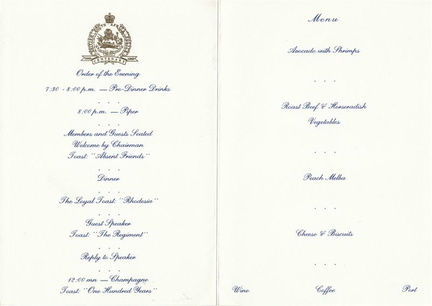 Order of the Evening
7:30 - 8:00 p.m. — Pre-Dinner Drinks
. . .
8:00 p.m. — Piper
. . .
Members and Guests Seated
Welcome by Chairman
Toast: "Absent Friends"
. . .
Dinner
. . .
The Loyal Toast: "Rhodesia"
. . .
Guest Speaker
Toast: "The Regiment"
. . .
Reply to Speaker
. . .
12:00 mn — Champagne
Toast: "One Hundred Years"
Menu
Avocado with Shrimps
. . .
Roast Beef & Horseradish
Vegetables
. . .
Peach Melba
. . .
Cheese & Biscuits
. . .
Wine Coffee Port